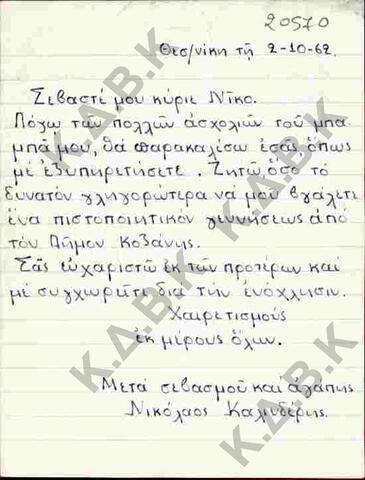 20570
Θεσ/νίκη τῇ 2-10-62.
Σεβαστέ μου κύριε Νῖκο.
Λόγω τῶν πολλῶν ἀσχολιῶν τοῦ μπα
μπᾶ μου, θά παρακαλέσω ἐσᾶς, ὅπως
μέ ἐξυπηρετήσετε. Ζητῶ, ὅσο τό
δυνατόν γληγορώτερα νά μοῦ βγάλετε
ἕνα πιστοποιητικόν γεννήσεως ἀπό
τόν Δῆμον Κοζάνης.
Σᾶς εὐχαριστῶ ἐκ τῶν προτέρων καί
μέ συγχωρεῖτε διά τήν ἐνόχλησιν.
Χαιρετισμούς
ἐκ μέρους ὅλων.
Μετά σεβασμοῦ καί ἀγάπης
Νικόλαος Καλινδέρης.
Κ.Δ.Β.Κ
Κ.Δ.Β.Κ
Κ.Δ.Β.Κ
Κ.Δ.Β.Κ